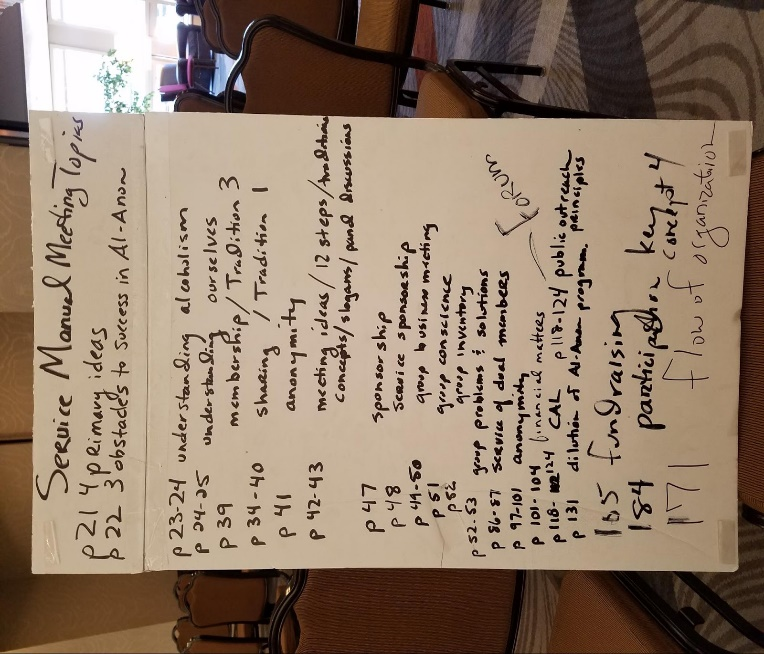 Service Manual Meeting Topics
p 21 4 primary ideas
p 22 3 obstacles to Success in Al-Anon
p 23-24 understanding alcoholism
p 24-25 understanding ourselves
p 39 membership / Tradition 3
p 34-40 sharing / Tradition 1
p 41 anonymity
p 42-43 meeting ideas / 12 steps / traditions
concepts / slogans / panel discussions
p 47 sponsorship
p 48 service sponsorship
p 49-50 group business meeting
p 51 group conscience
p 52 group inventory
p 52-53 group problems & solutions
p 86-87 service of dual members
p 97-101 anonymity
p 101-104 financial matters
p 118-124 CAL p 118-124 public outreach
FORUM
p 131 dilution of Al-Anon program. principles
165 fundraising
184 participation key concept 4
171 flow of organization